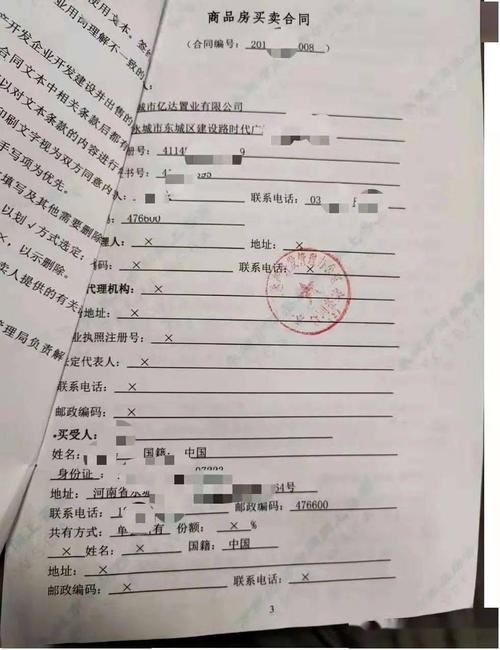 使用文本。签
业用词理解不一致的
产开发企业开发建设并出售的
合同文本中相关条款后都有
以对文本条款的内容进行
印刷文字视为双方同意内
手写项为优先。
填写及其他需要删除
以划√方式选定;
×,以示删除。
卖人提供的有关
管理局负责解
商品房买卖合同
(合同编号: 201 008)
城市亿达置业有限公司
永城市东城区建设路时代广
册号: 4114 9
书号: 4
联系电话: 03
476600
理人: × 地址: ×
编码: × 联系电话: ×
代理机构: ×
地址: ×
业执照注册号: ×
定代表人: ×
联系电话: ×
邮政编码: ×
买受人:
姓名: 国籍: 中国
身份证
地址: 河南省永 64号
联系电话: 1 邮政编码: 476600
共有方式: 单 有 份额: × %
× 姓名: × 国籍: 中国
地址: ×
邮政编码: × 联系电话: ×
3